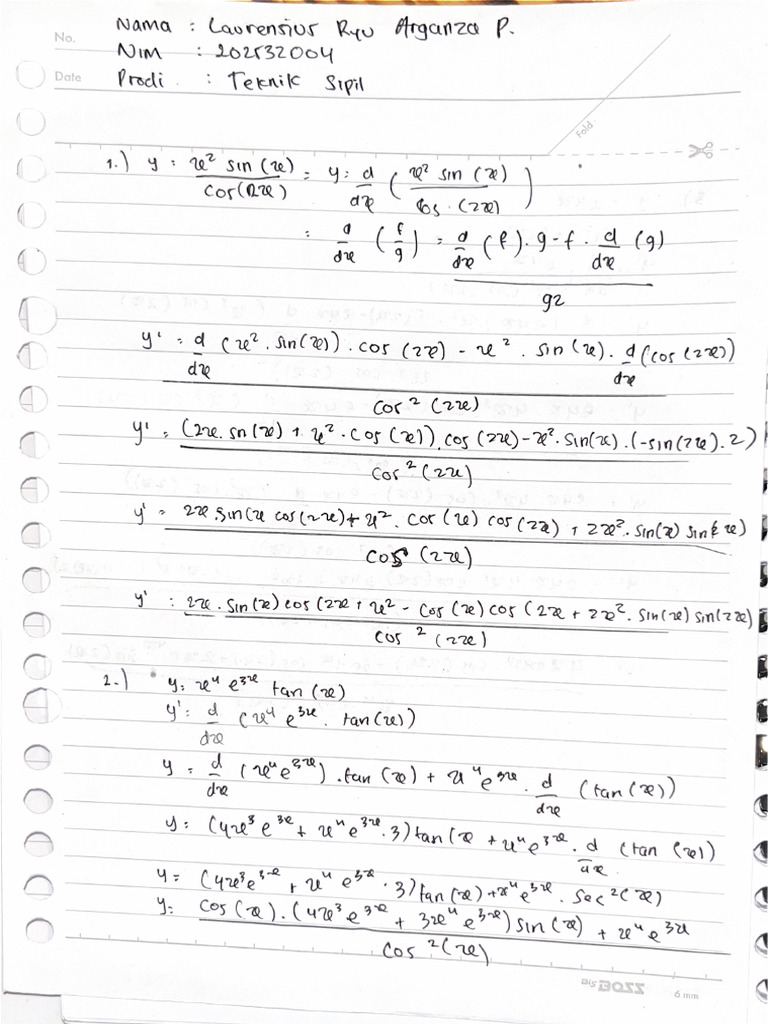 Nama : Laurensius Ryu Arganza P.
No.
NIM : 202532004
Date
Prodi : Teknik Sipil
Fold
1.) y : x² sin (x) / cos (2x) = y : d/dx ( x² sin (x) / cos . (2x) )
= d/dx ( f/g ) = d/dx (f) . g - f . d/dx (g) / g2
y' = d/dx (x² . sin (x)) . cos (2x) - x² . sin (x) . d/dx (cos (2x)) / cos² (2x)
y' = (2x . sn (x) + x² . cos (x)) . cos (2x) - x² . sin (x) . (-sin (2x) . 2) / cos² (2x)
y' = 2x . sin (x cos (2x) + x² . cos (x) cos (2x) + 2x² . sin (x) sin (2x) / cos² (2x)
y' : 2x . sin (x) cos (2x + x² - cos (x) cos (2x + 2x² . sin (x) sin (2x) / cos² (2x)
2.) y : x⁴ e³ˣ tan (x)
y' : d/dx (x⁴ e³ˣ . tan (x))
y = d/dx (x⁴ e³ˣ) . tan (x) + x⁴ e³ˣ . d/dx (tan (x))
y = (4x³ e³ˣ + x⁴ e³ˣ . 3) tan (x + x⁴ e³ˣ . d/dx (tan (x))
y = (4x³ e³ˣ + x⁴ e³ˣ . 3) tan (x) + x⁴ e³ˣ . sec² (x)
y : cos (x) . (4x³ e³ˣ + 3x⁴ e³ˣ) sin (x) + x⁴ e³ˣ / cos² (x)
BIG BOSS
6 mm